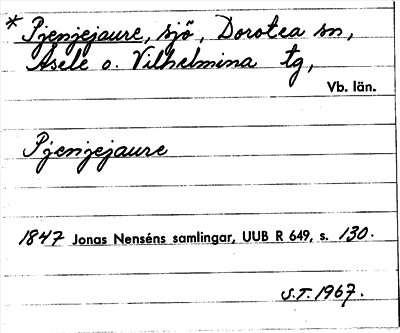 * Pjenjejaure, sjö, Dorotea sn,
Åsele o. Vilhelmina tg,
Vb. län.
Pjenjejaure
1847 Jonas Nenséns samlingar, UUB R 649, s. 130.
S.T. 1967.